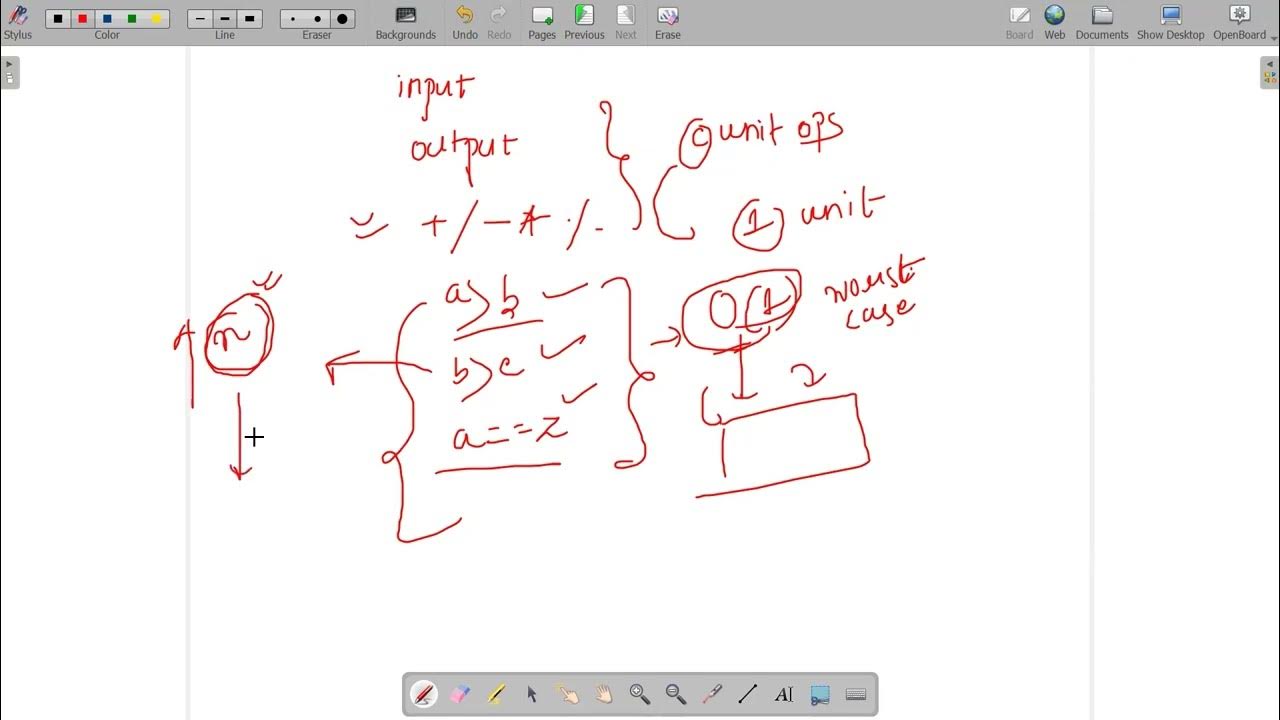 Stylus
Color
Line
Eraser
Backgrounds
Undo
Redo
Pages
Previous
Next
Erase
Board
Web
Documents
Show Desktop
OpenBoard
input
output
unit ops
+ / - * %
1 unit
n
a>b
O(1)
worst
case
b>c
a==z